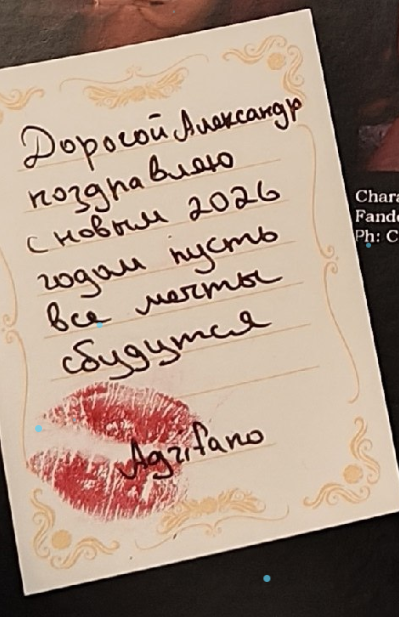 Дорогой Александр
поздравляю
с новым 2026
годом пусть
все мечты
сбудутся
Agrifano
Chara
Fando
Ph: C